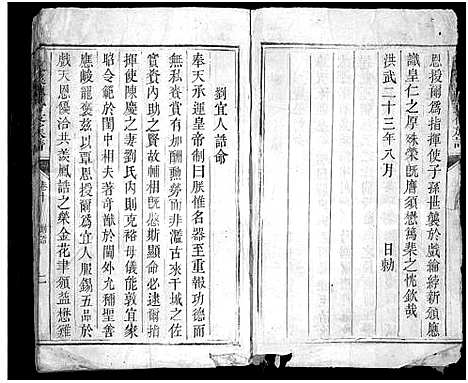 恩授爾爲指揮使子孫世襲於戲綸綍新頒應
識皇仁之厚殊榮旣膺須懋萬棐之忱欽哉
洪武二十三年八月　　　日勅
劉宜人誥命
奉天承運皇帝制曰朕惟名器至重報功德而
無私眷賞有加酬勳勞而非濫古來干城之佐
實資內助之賢故溥恩斯顯命必逮爾
揮使陳慶之妻劉氏內則克裕母儀能敦宜家
昭令範於閫中相夫著奇猷於閫外允稱聖善
應峻寵褒茲以覃恩授爾爲宜人服錫五品於
戲天恩優洽共羨鳳誥之榮金花聿頒益懋雞